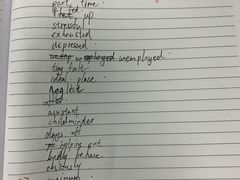 part time.
fed up
stressful
exhausted
depressed.
unemployed unemployed.
tiny talk
ideal place.
Neglect
after
assistant
childminder
days off
not helping out
badly behave
obviously